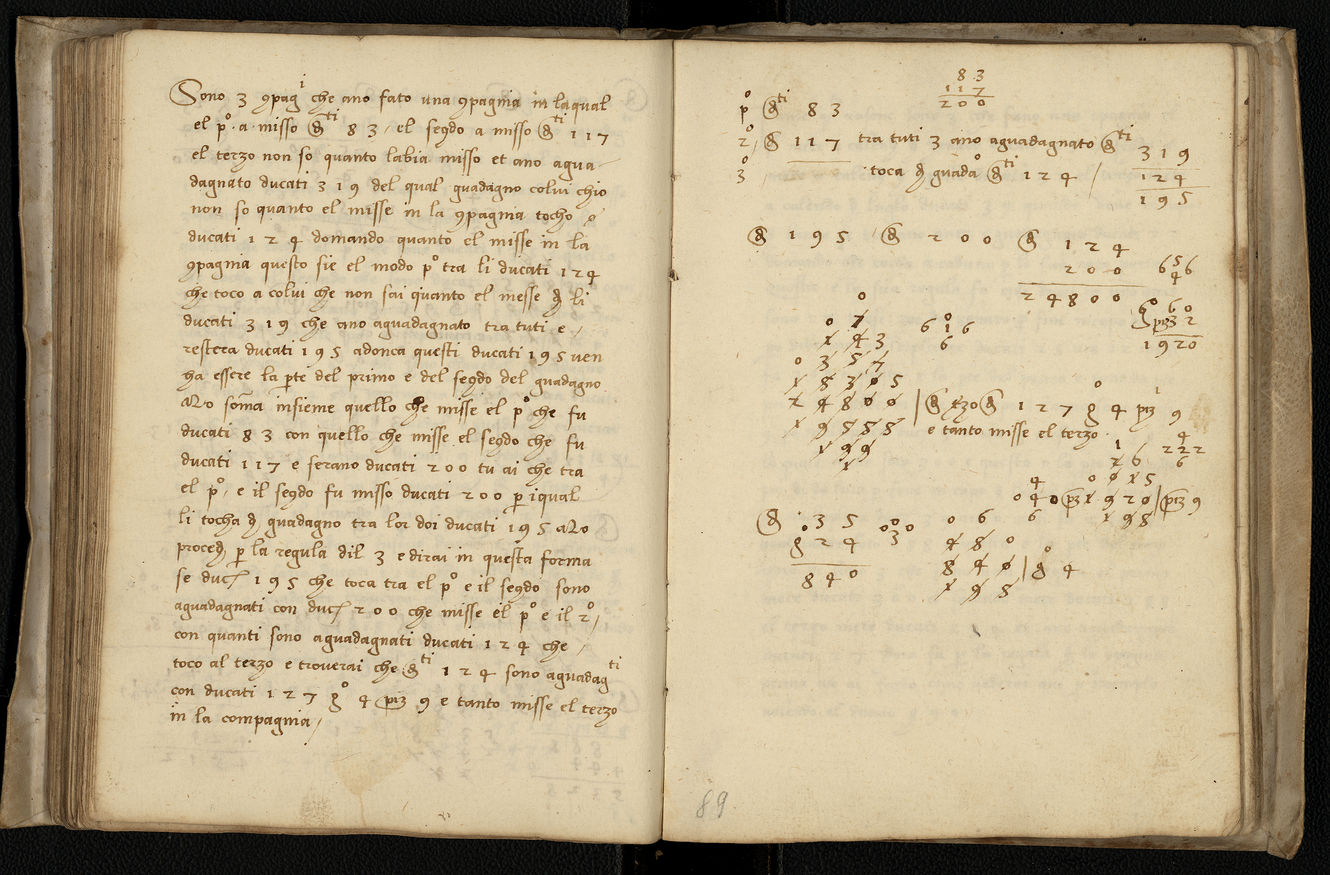 Sono 3 9pag.i che ano fato una 9pagnia in laqual
el p.o a misso d.ti 83 / el se9do a misso d.ti 117
el terzo non so quanto labia misso et ano agua-
dagnato ducati 319 del qual guadagno colui chio
non so quanto el misse in la 9pagnia tocho
ducati 124 domando quanto el misse in la
9pagnia questo sie el modo p.o tra li ducati 124
che toco a colui che non sai quanto el messe de li
ducati 319 che ano aguadagnato tra tuti e /
restera ducati 195 adonca questi ducati 195 ven
ha essere la pte del primo e del se9do del guadagno
soma insieme quello che misse el p.o che fu
ducati 83 con quello che misse el se9do che fu
ducati 117 e serano ducati 200 tu ai che tra
el p.o e il se9do fu misso ducati 200 p iqual
li tocha de guadagno tra lor doi ducati 195
proced p la regula dil 3 e dirai in questa forma
se duc 195 che toca tra el p.o e il se9do sono
aguadagnati con duc 200 che misse el p.o e il 2.o /
con quanti sono aguadagnati ducati 124 che /
toco al terzo e troverai che d.ti 124 sono aguadag.ti
con ducati 127 g.o 4 piz 9 e tanto misse el terzo
in la compagnia /
83
117
200
p.o d.ti 83
2.o / d 117 tra tuti 3 ano aguadagnato d.ti 319
3.o / toca de guada.o d.ti 124 /
124
195
d 195 / d 200 d 124
200
24800
656
4
g.o 6.o
piz 2
1920
6 0 1 6
6
24800 | d tzo d 127 g.o 4 piz.i 9
e tanto misse el terzo
4
222
6
piz 1920 | piz 9
198
d 35
g.o 24
840
000
3
840 | g.o 4
195
89